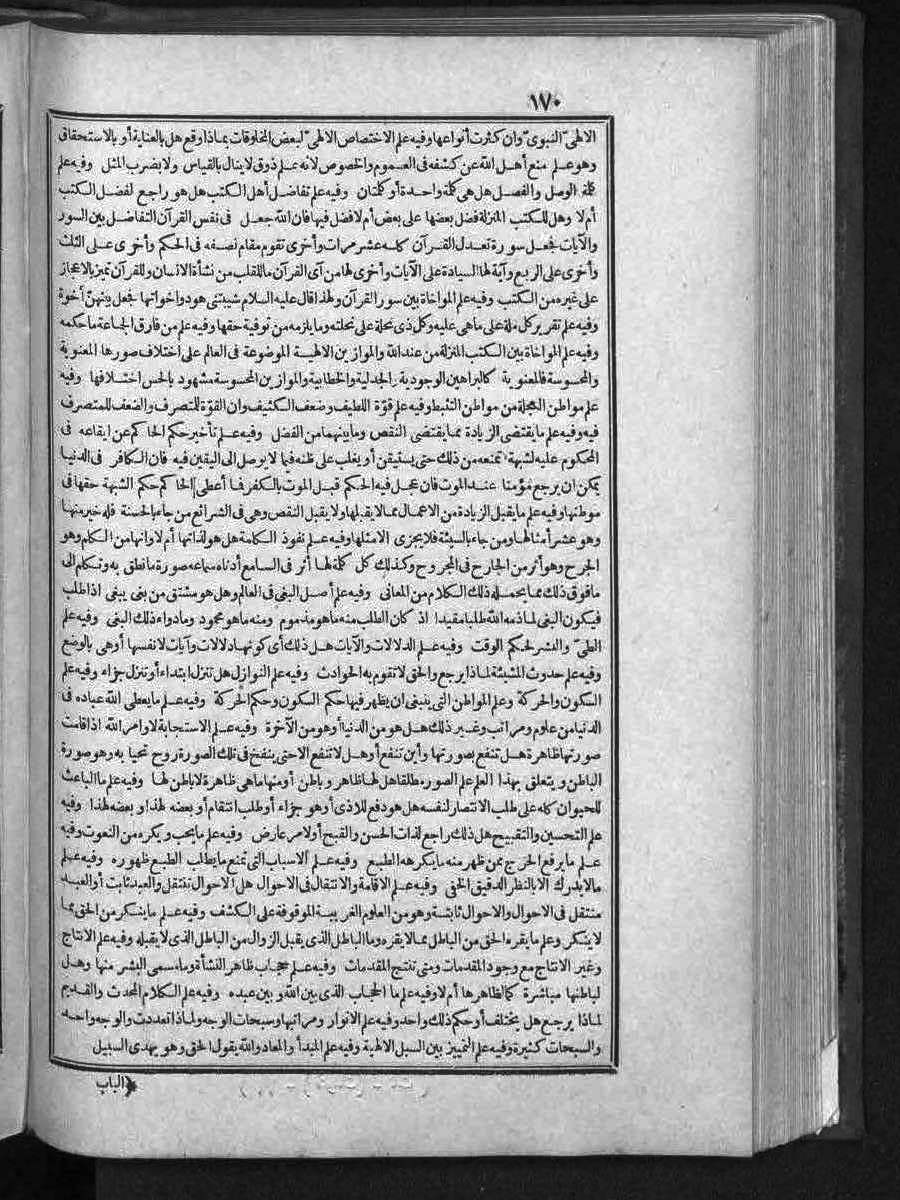 ١٧٠
الالهىّ النبوىّ وان كثرت أنواعها وفيه علم الاختصاص الالهىّ لبعض المخلوقات بماذا وقع هل بالعناية أو بالاستحقاق
وهو علم منع أهل الله عن كشفه فى العموم والخصوص لانه علم ذوق لا ينال بالقياس ولا بضرب المثل وفيه علم
كلمة الوصل والفصل هل هى كلمة واحدة أو كلمتان وفيه علم تفاضل أهل الكتب هل هو راجع لفضل الكتب
أم لا وهل للكتب المنزلة فضل بعضها على بعض أم لا فضل فيها فان الله جعل فى نفس القرآن التفاضل بين السور
والآيات فجعل سورة تعدل القرآن كله عشر مرات وأخرى تقوم مقام نصفه فى الحكم وأخرى على الثلث
وأخرى على الربع وآية لها السيادة على الآيات وأخرى لها من آى القرآن ما للقلب من نشأة الانسان وللقرآن تميز بالاعجاز
على غيره من الكتب وفيه علم المواخاة بين سور القرآن ولهذا قال عليه السلام شيبتنى هود وأخواتها فجعل بينهنّ أخوة
وفيه علم تقرير كل ملة على ما هى عليه وكل ذى نحلة على نحلته وما يلزمه من توفية حقها وفيه علم من فارق الجماعة ما حكمه
وفيه علم المواخاة بين الكتب المنزلة من عند الله والموازين الالهية الموضوعة فى العالم على اختلاف صورها المعنوية
والمحسوسة فالمعنوية كالبراهين الوجودية والجدلية والخطابية والموازين المحسوسة مشهود بالحس اختلافها وفيه
علم مواطن العجلة من مواطن التثبط وفيه علم قوّة اللطيف وضعف الكثيف وان القوّة للمتصرف والضعف للمتصرف
فيه وفيه علم ما يقتضى الزيادة مما يقتضى النقص وما بينهما من الفضل وفيه علم تأخير حكم الحاكم عن ايقاعه فى
المحكوم عليه لشبهة تمنعه من ذلك حتى يستيقن أو يغلب على ظنه فيما لا يوصل الى اليقين فيه فان الكافر فى الدنيا
يمكن ان يرجع مؤمنا عند الموت فان عجل فيه الحكم قبل الموت بالكفر فما أعطى الحاكم حكم الشبهة حقها فى
موطنها وفيه علم ما يقبل الزيادة من الاعمال مما لا يقبلها ولا يقبل النقص وهى فى الشرائع من جاء بالحسنة فله خير منها
وهو عشر أمثالها ومن جاء بالسيئة فلا يجزى الا مثلها وفيه علم نفوذ الكلمة هل هو لذاتها أم لا وانها من الكلم وهو
الجرح وهو أثر من الجارح فى المجروح وكذلك كل كلمة لها أثر فى السامع أدناه سماعه صورة ما نطق به وتكلم الى
ما فوق ذلك مما يحمله ذلك الكلام من المعانى وفيه علم أصل البغى فى العالم وهل هو مشتق من بغى يبغى اذا طلب
فيكون البغى لما ذمه الله طلبا مقيدا اذ كان الطلب منه ما هو مذموم ومنه ما هو محمود وما دواء ذلك البغى وفيه علم
الطىّ والنشر لحكم الوقت وفيه علم الدلالات والآيات هل ذلك أى كونها دلالات وآيات لانفسها أو هى بالوضع
وفيه علم حدوث المشيئة لماذا يرجع والحق لا تقوم به الحوادث وفيه علم النوازل هل تنزل ابتداء أو تنزل جزاء وفيه علم
السكون والحركة وعلم المواطن التى ينبغى ان يظهر فيها حكم السكون وحكم الحركة وفيه علم ما يعطى الله عباده فى
الدنيا من علوم ومراتب وغير ذلك هل هو من الدنيا أو هو من الآخرة وفيه علم الاستجابة لاوامر الله اذا قامت
صورتها ظاهرة هل تنفع بصورتها وأين تنفع أو هل لا تنفع الا حتى ينفخ فى تلك الصورة روح تحيا به وهو صورة
الباطن ويتعلق بهذا العلم علم الصورة مطلقا هل لها ظاهر وباطن أو منها ما هى ظاهرة لا باطن لها وفيه علم ما الباعث
للحيوان كله على طلب الانتصار لنفسه هل هو دفع للاذى أو هو جزاء أو طلب انتقام أو بعضه لهذا وبعضه لهذا وفيه
علم التحسين والتقبيح هل ذلك راجع لذات الحسن والقبيح أو لامر عارض وفيه علم ما يحب ويكره من النعوت وفيه
علم ما يرفع الحرج ممن ظهر منه ما يكرهه الطبع وفيه علم الاسباب التى تمنع ما يطلب الطبع ظهوره وفيه علم
ما لا يدرك الا بالنظر الدقيق الخفى وفيه علم الاقامة والانتقال فى الاحوال هل الاحوال تنتقل والعبد ثابت أو العبد
منتقل فى الاحوال والاحوال ثابتة وهو من العلوم الغريبة الموقوفة على الكشف وفيه علم ما ينكر من الحق مما
لا ينكر وعلم ما يقره الحق من الباطل مما لا يقره وما الباطل الذى يقبل الزوال من الباطل الذى لا يقبله وفيه علم الانتاج
وغير الانتاج مع وجود المقدمات ومتى تنتج المقدمات وفيه علم حجاب ظاهر النشأة وما مسمى البشر منها وهل
لباطنها مباشرة كما لظاهرها أم لا وفيه علم ما الحجاب الذى بين الله وبين عبده وفيه علم الكلام المحدث والقديم
لماذا يرجع هل يختلف أو حكم ذلك واحد وفيه علم الانوار ومراتبها وسبحات الوجه ولماذا تعددت والوجه واحد
والسبحات كثيرة وفيه علم التمييز بين السبل الالهية وفيه علم المبدأ والمعاد والله يقول الحق وهو يهدى السبيل
الباب